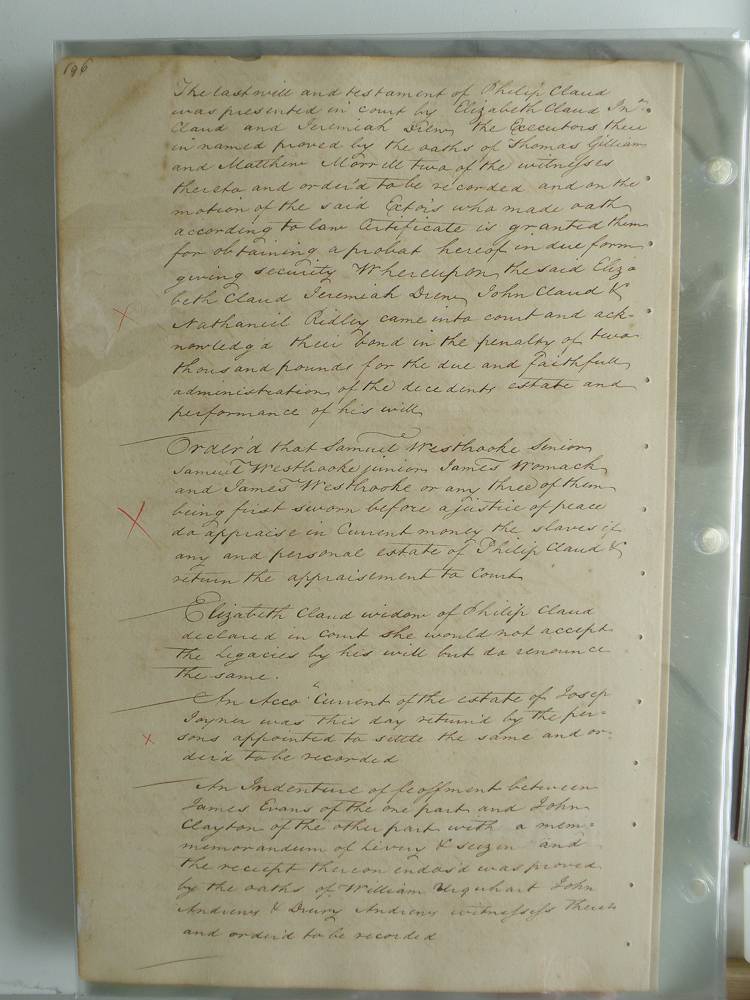 196
The last will and testament of Philip Claud
was presented in court by Elizabeth Claud Jno.
Claud and Jeremiah Drew the Executors there
in named proved by the oaths of Thomas Gilliam
and Matthew Morrill two of the witnesses
thereto and order'd to be recorded and on the
motion of the said Extors who made oath
according to law Certificate is granted them
for obtaining a probat hereof in due form
giving security Whereupon the said Eliza
beth Claud Jeremiah Drew John Claud &
Nathaniel Ridley came into court and ack-
nowledgd their bond in the penalty of two
thousand pounds for the due and faithfull
administration of the decedents estate and
performance of his will
Order'd that Samuel Westbrooke Senior
Samuel Westbrooke junior James Womack
and James Westbrooke or any three of them
being first sworn before a justice of peace
do appraise in Current money the slaves if
any and personal estate of Philip Claud &
return the appraisement to Court
Elizabeth Claud widow of Philip Claud
declared in court she would not accept
the Legacies by his will but do renounce
the same.
An Acco. Current of the estate of Josep
Joyner was this day return'd by the per-
sons appointed to settle the same and or-
der'd to be recorded
An Indenture of feoffment between
James Evans of the one part and John
Clayton of the other part with a mem=
memorandum of Livery & seizen and
the receipt thereon endors'd was proved
by the oaths of William Urquhart John
Andrews & Drury Andrews witnesses thereto
and order'd to be recorded